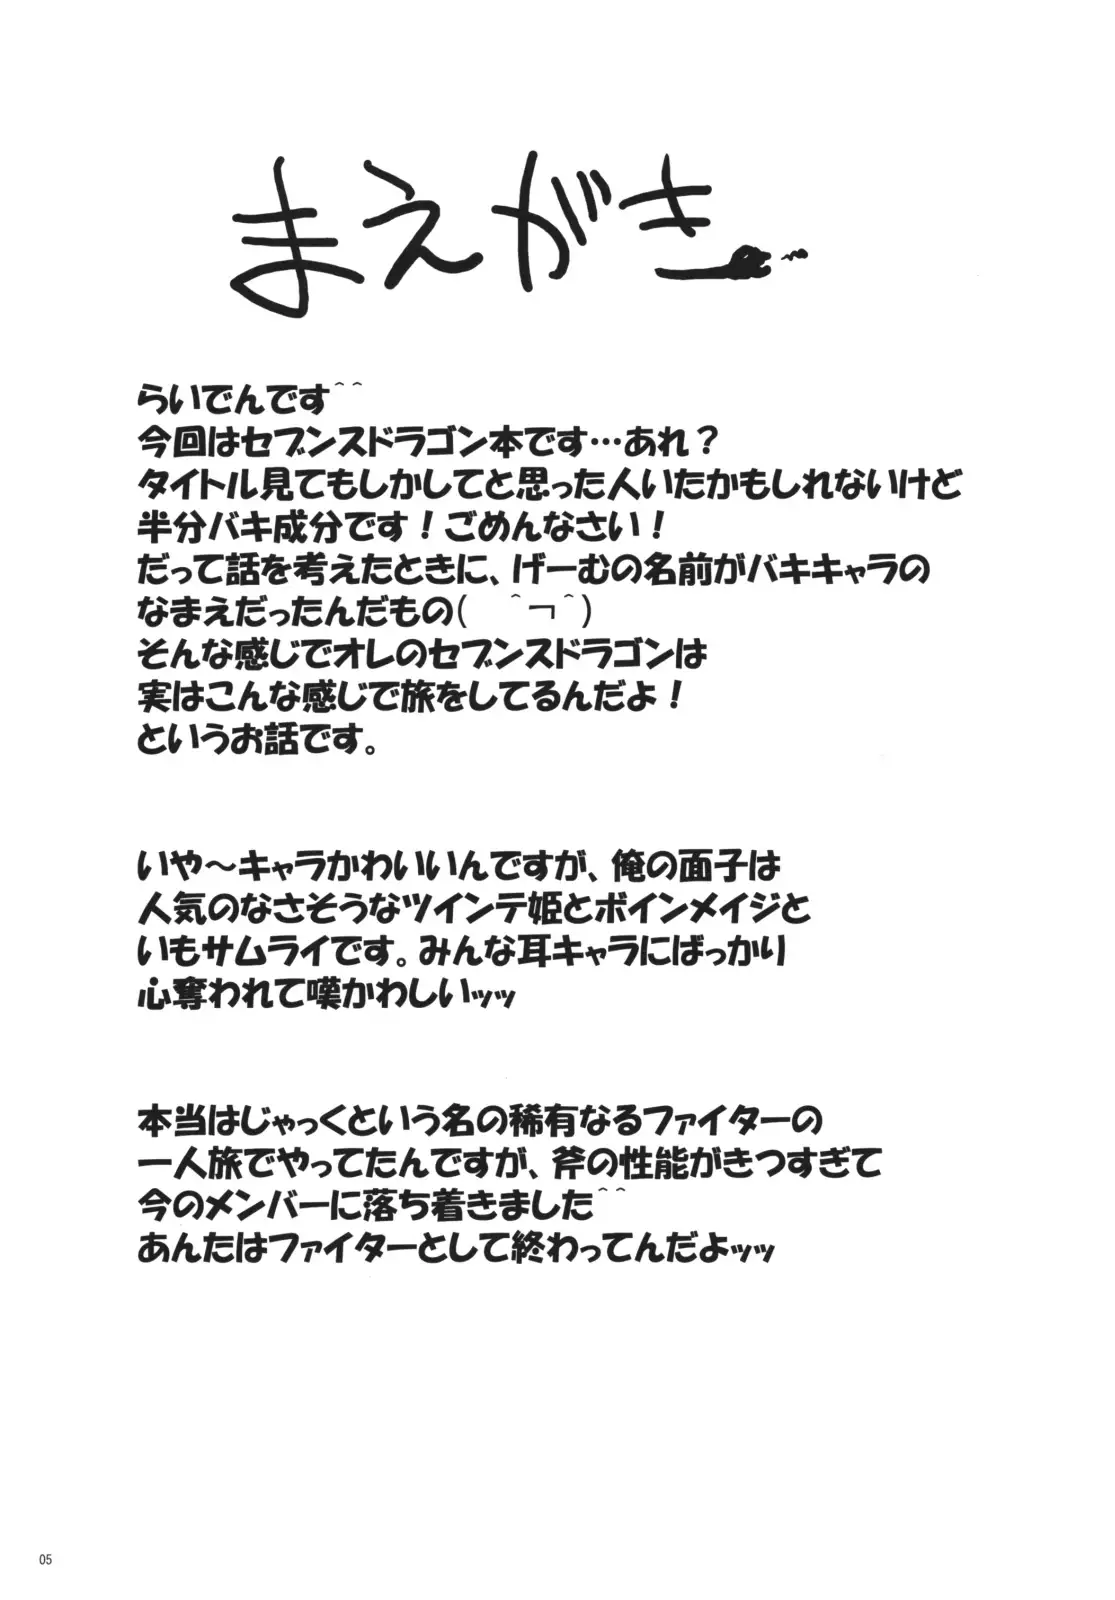 まえがき
らいでんです＾＾
今回はセブンスドラゴン本です…あれ？
タイトル見てもしかしてと思った人いたかもしれないけど
半分バキ成分です！ごめんなさい！
だって話を考えたときに、げーむの名前がバキキャラの
なまえだったんだもの(　＾¬＾)
そんな感じでオレのセブンスドラゴンは
実はこんな感じで旅をしてるんだよ！
というお話です。
いや～キャラかわいいんですが、俺の面子は
人気のなさそうなツインテ姫とボインメイジと
いもサムライです。みんな耳キャラにばっかり
心奪われて嘆かわしいッッ
本当はじゃっくという名の稀有なるファイターの
一人旅でやってたんですが、斧の性能がきつすぎて
今のメンバーに落ち着きました＾＾
あんたはファイターとして終わってんだよッッ
05